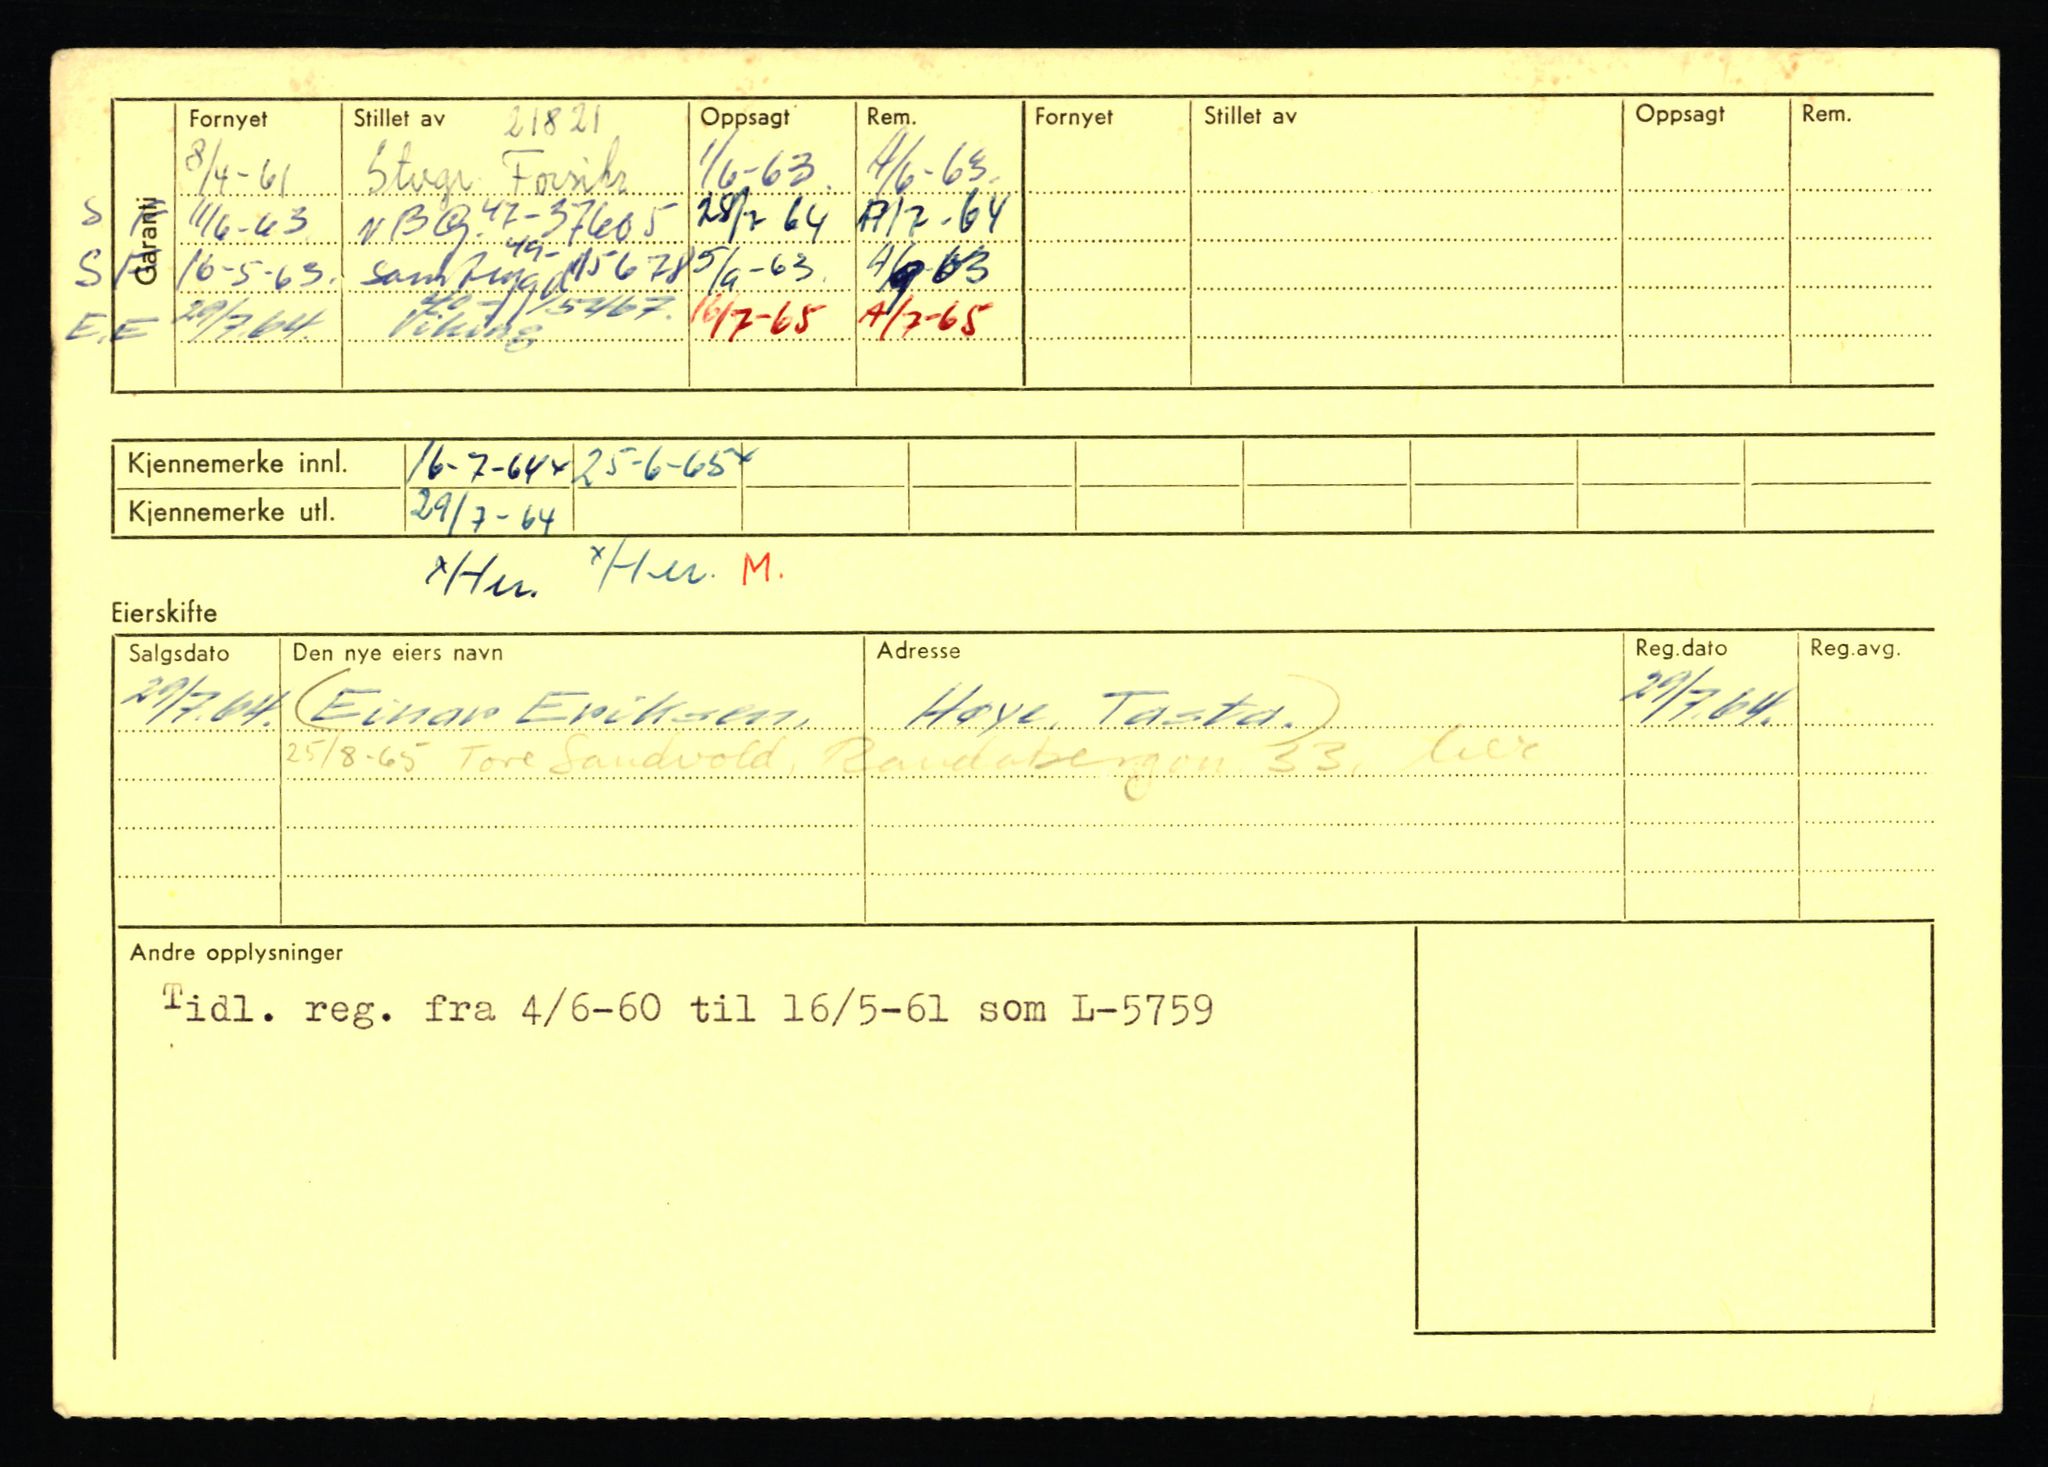 Garanti
Fornyet Stillet av 21821 Oppsagt Rem. Fornyet Stillet av Oppsagt Rem.
8/4-61 Stvgr. Forsikr 1/6-63. A/6-63.
S 11/6-63 47-37605 28/7 64 A/7-64
S 16-5-63. Samtrygd 49-15678 5/9-63. A/9-63
E.E 29/7.64. Viking 16/7-65 A/7-65
Kjennemerke innl. 16-7-64x 25-6-65x
Kjennemerke utl. 29/7-64
x/Her. x/Her. M.
Eierskifte
Salgsdato Den nye eiers navn Adresse Reg.dato Reg.avg.
29/7.64. (Einar Eriksen, Høye, Tasta.) 29/7.64.
25/8-65 Tore Sandvold, Randabergvn 33, her
Andre opplysninger
Tidl. reg. fra 4/6-60 til 16/5-61 som L-5759